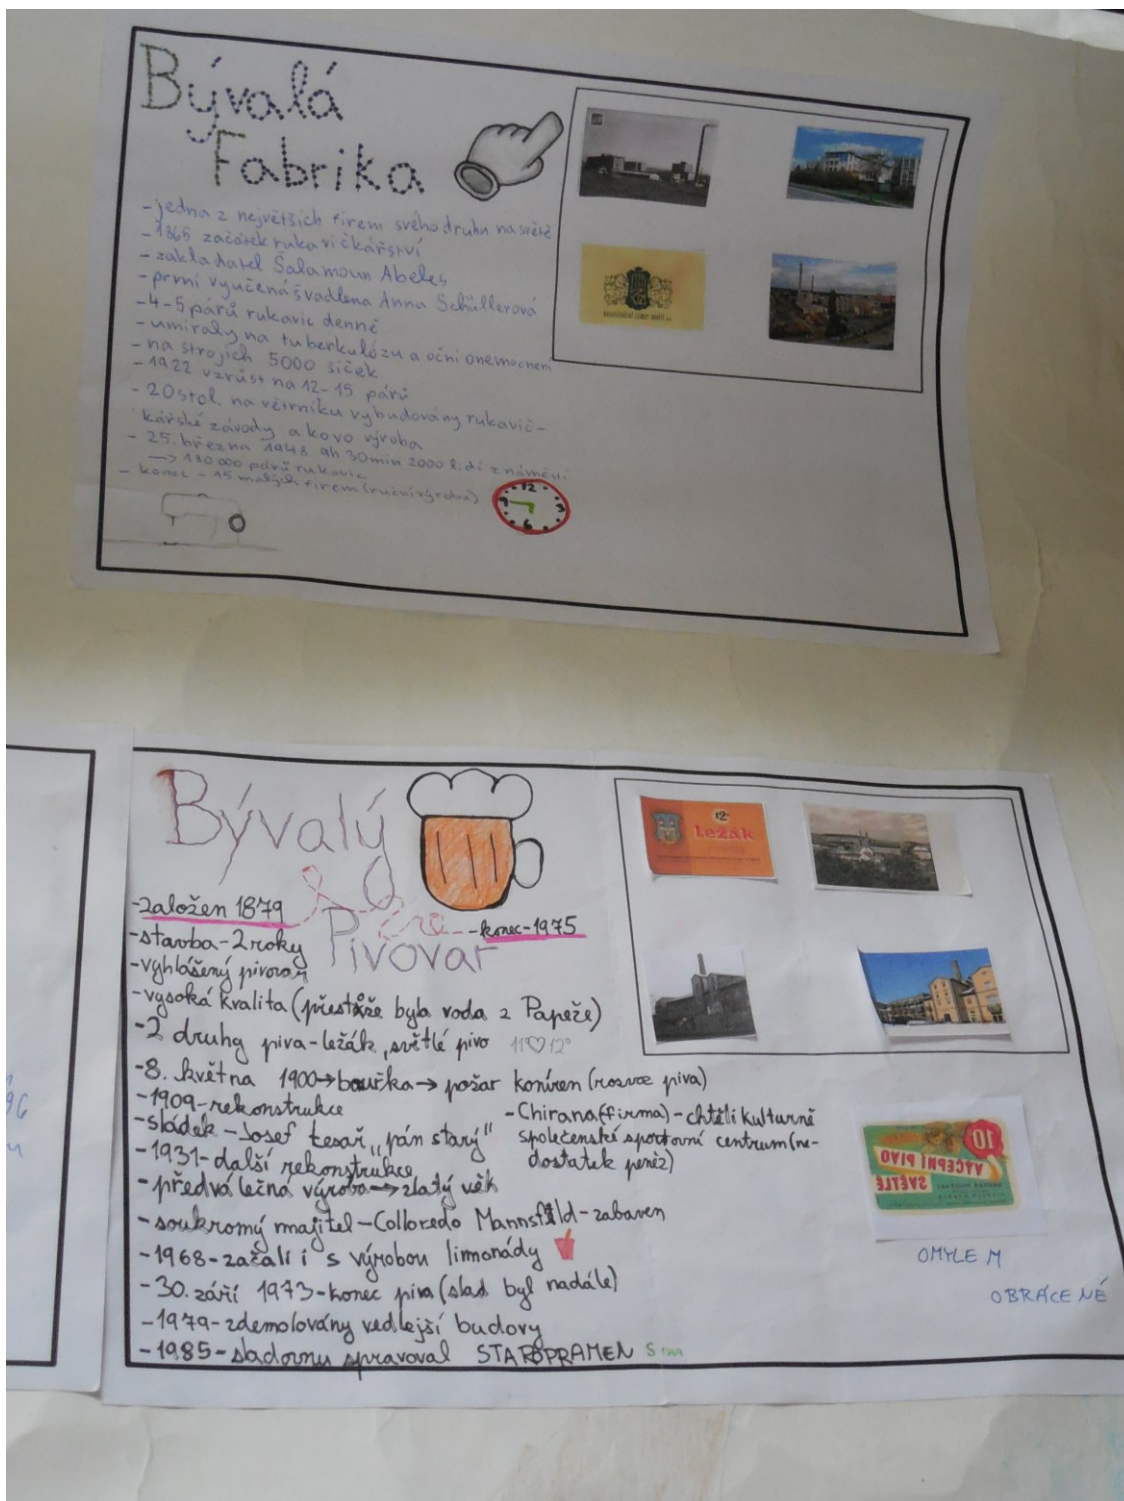 Bývalá
Fabrika
- jedna z největších firem svého druhu na světě
- 1865 začátek rukavičkářství
- zakladatel Šalamoun Abeles
- první vyučená švadlena Anna Schüllerová
- 4-5 párů rukavic denně
- umíraly na tuberkulózu a oční onemocnění
- na strojích 5000 šiček
- 1922 vzrůst na 12-15 párů
- 20 stol. na větrníku vybudovány rukavič-
kářské závody a kovo výroba
- 25. března 1948 9h 30min 2000 lidí z náměstí
→ 180 000 párů rukavic
- konec - 15 malých firem (ruční výroba)
12
3
6
9
Bývalý
Pivovar
- založen 1879
- konec - 1975
- stavba - 2 roky
- vyhlášený pivovar
- vysoká kvalita (přestože byla voda z Papeže)
- 2 druhy piva - ležák, světlé pivo 11°♡12°
- 8. května 1900 → bouřka → požar koníren (rozvoz piva)
- 1909 - rekonstrukce
- sládek - Josef tesař „pán starý"
- 1931 - další rekonstrukce
- předválečná výroba → zlatý věk
- soukromý majitel - Colloredo Mannsfeld - zabaven
- 1968 - začali i s výrobou limonády
- 30. září 1973 - konec piva (slad byl nadále)
- 1979 - zdemolovány vedlejší budovy
- 1985 - sladovnu spravoval STAROPRAMEN
- Chirana (firma) - chtěli kulturně
společenské sportovní centrum (ne-
dostatek peněz)
12
Ležák
10
VÝČEPNÍ PIVO
SVĚTLÉ
OMYLEM
OBRÁCENÉ
96